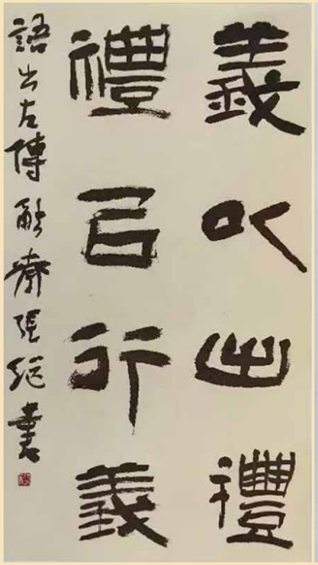 義以出禮
禮以行義
語出左傳觥齋張繼書